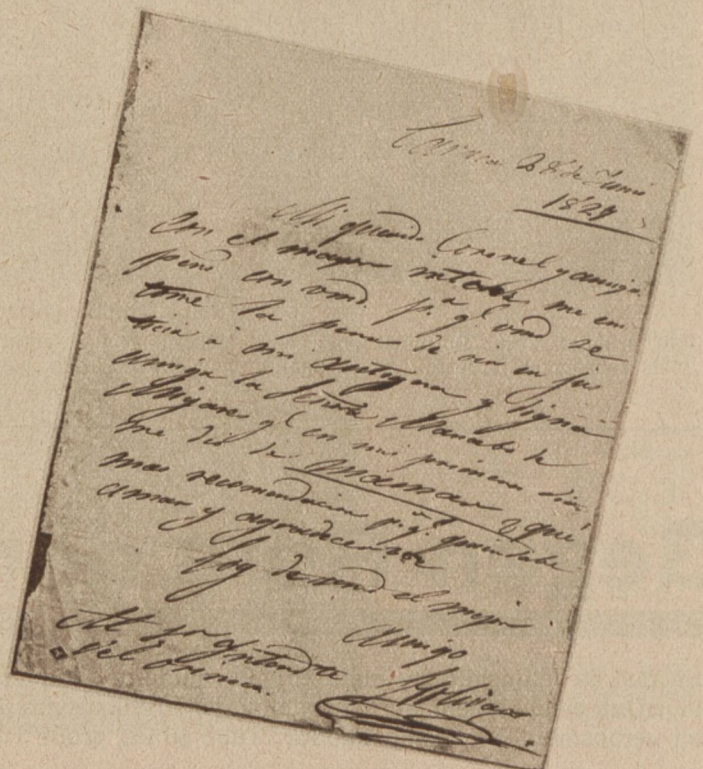 Carcas 28 de Junio
1827
Mi querido Coronel y amigo
Con el mayor interes me em
peño con vmd. p.ª q.e vmd se
tome la pena de oir en jus
ticia á mi antigua y digna
amiga la Señora Mancebo de
Mijares q.e en mis primeros dias
me dio de mamar ¿que
mas recomendacion p.ª quien sabe
amar y agradecer
Soy de vmd el mejor
amigo
Bolivar
Al Sr Yntend.te
del Orinoco.